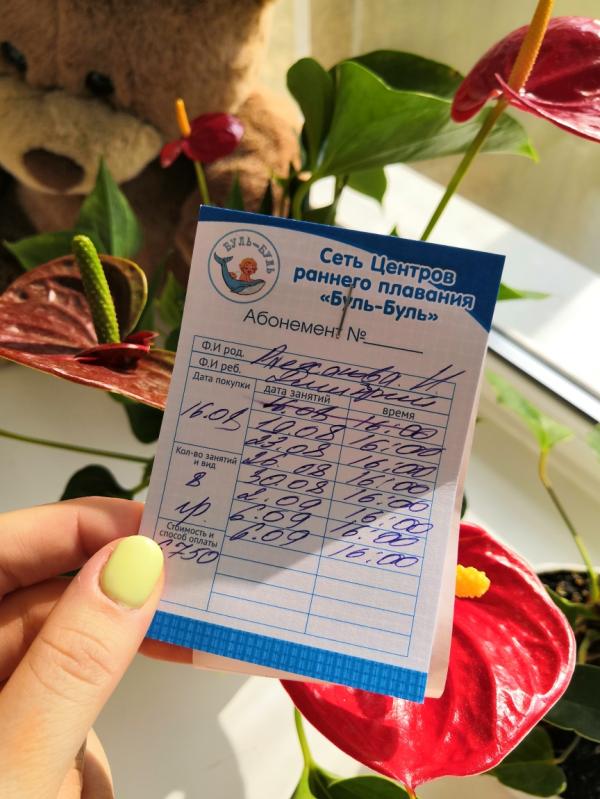 БУЛЬ-БУЛЬ
Сеть Центров
раннего плавания
«Буль-Буль»
Абонемент №
Ф.И род.
Ф.И реб. Дмитрий
Дата покупки дата занятий время
16.08 16.08 16:00
19.08 16:00
23.08 16:00
26.08 16:00
Кол-во занятий
и вид
8 30.08 16:00
2.09 16:00
6.09 16:00
6.09 16:00
Стоимость и
способ оплаты